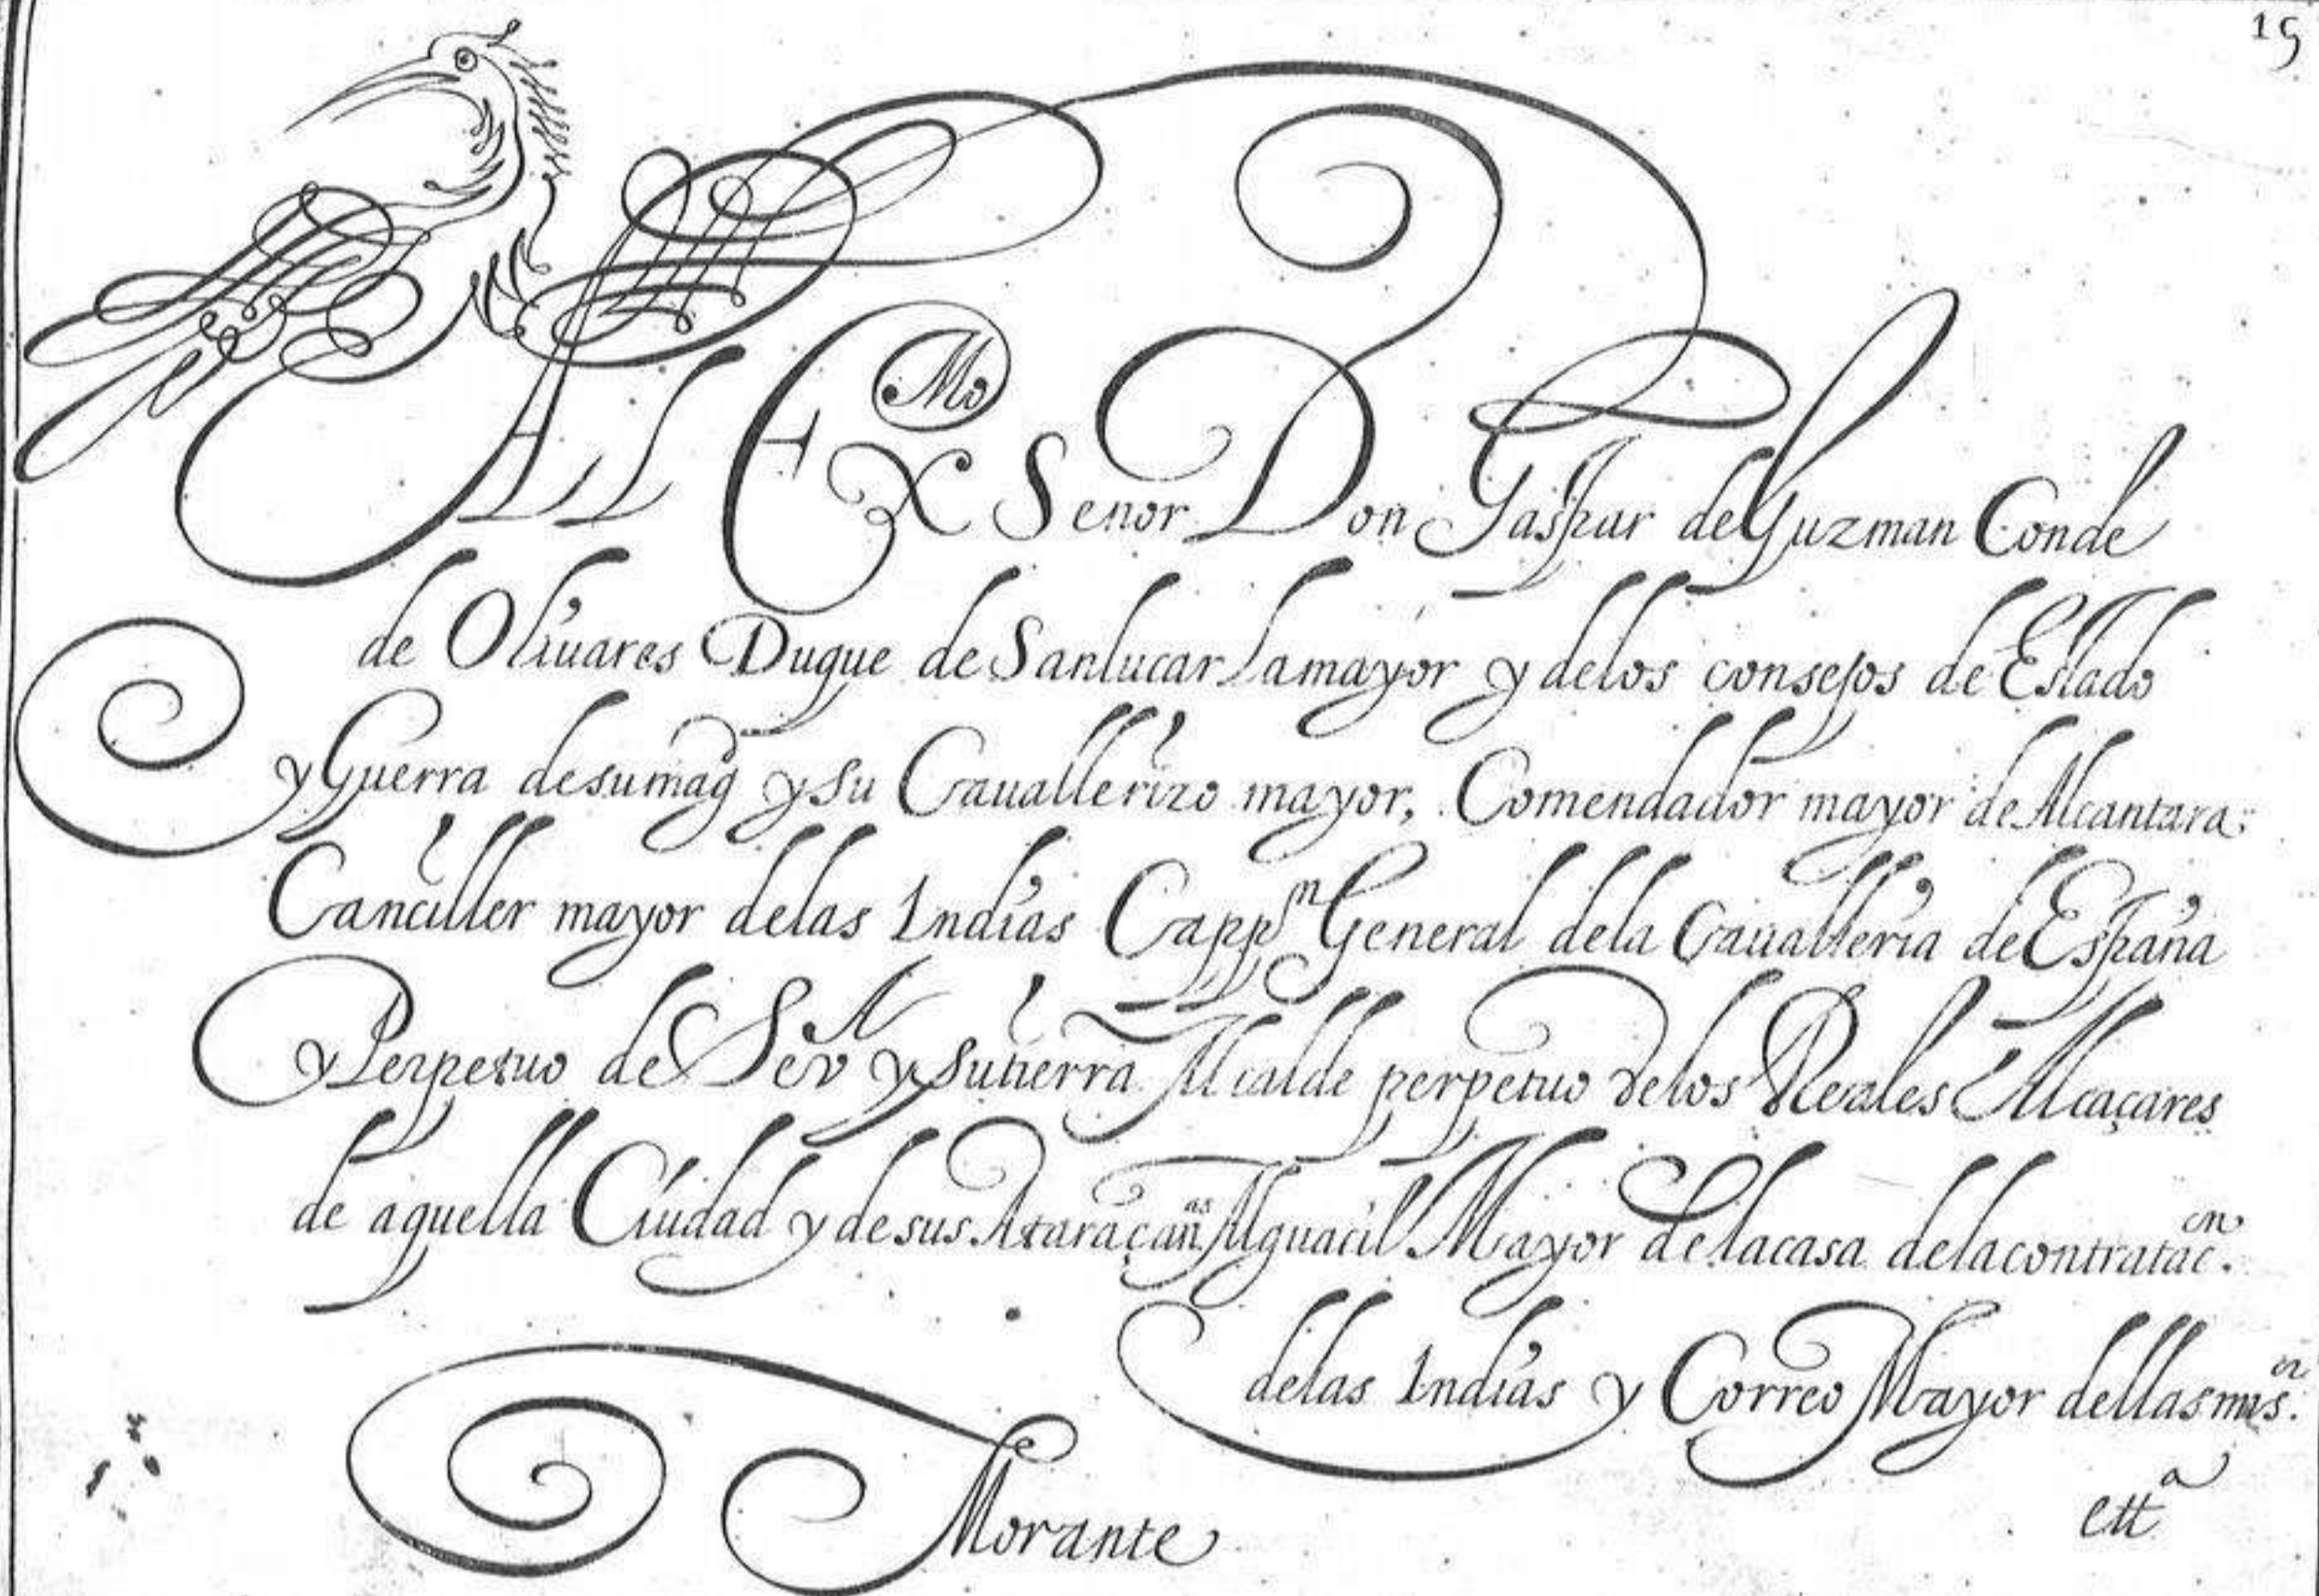 15
Al Ex.mo Senor Don Gaspar de Guzman Conde
de Oliuares Duque de Sanlucar lamayor y delos consejos de Estado
y Guerra de su magd y su Cauallerizo mayor, Comendador mayor de Alcantara
Canciller mayor delas Indias Cappn General dela Cauallería de España
y Perpetuo de SevA y sutierra Alcalde perpetuo delos Reales Alcaçares
de aquella Ciudad y de sus Ataraçanas Alguacil Mayor de lacasa delacontratac.on
delas Indias y Correo Mayor dellas mis.
etta
Morante